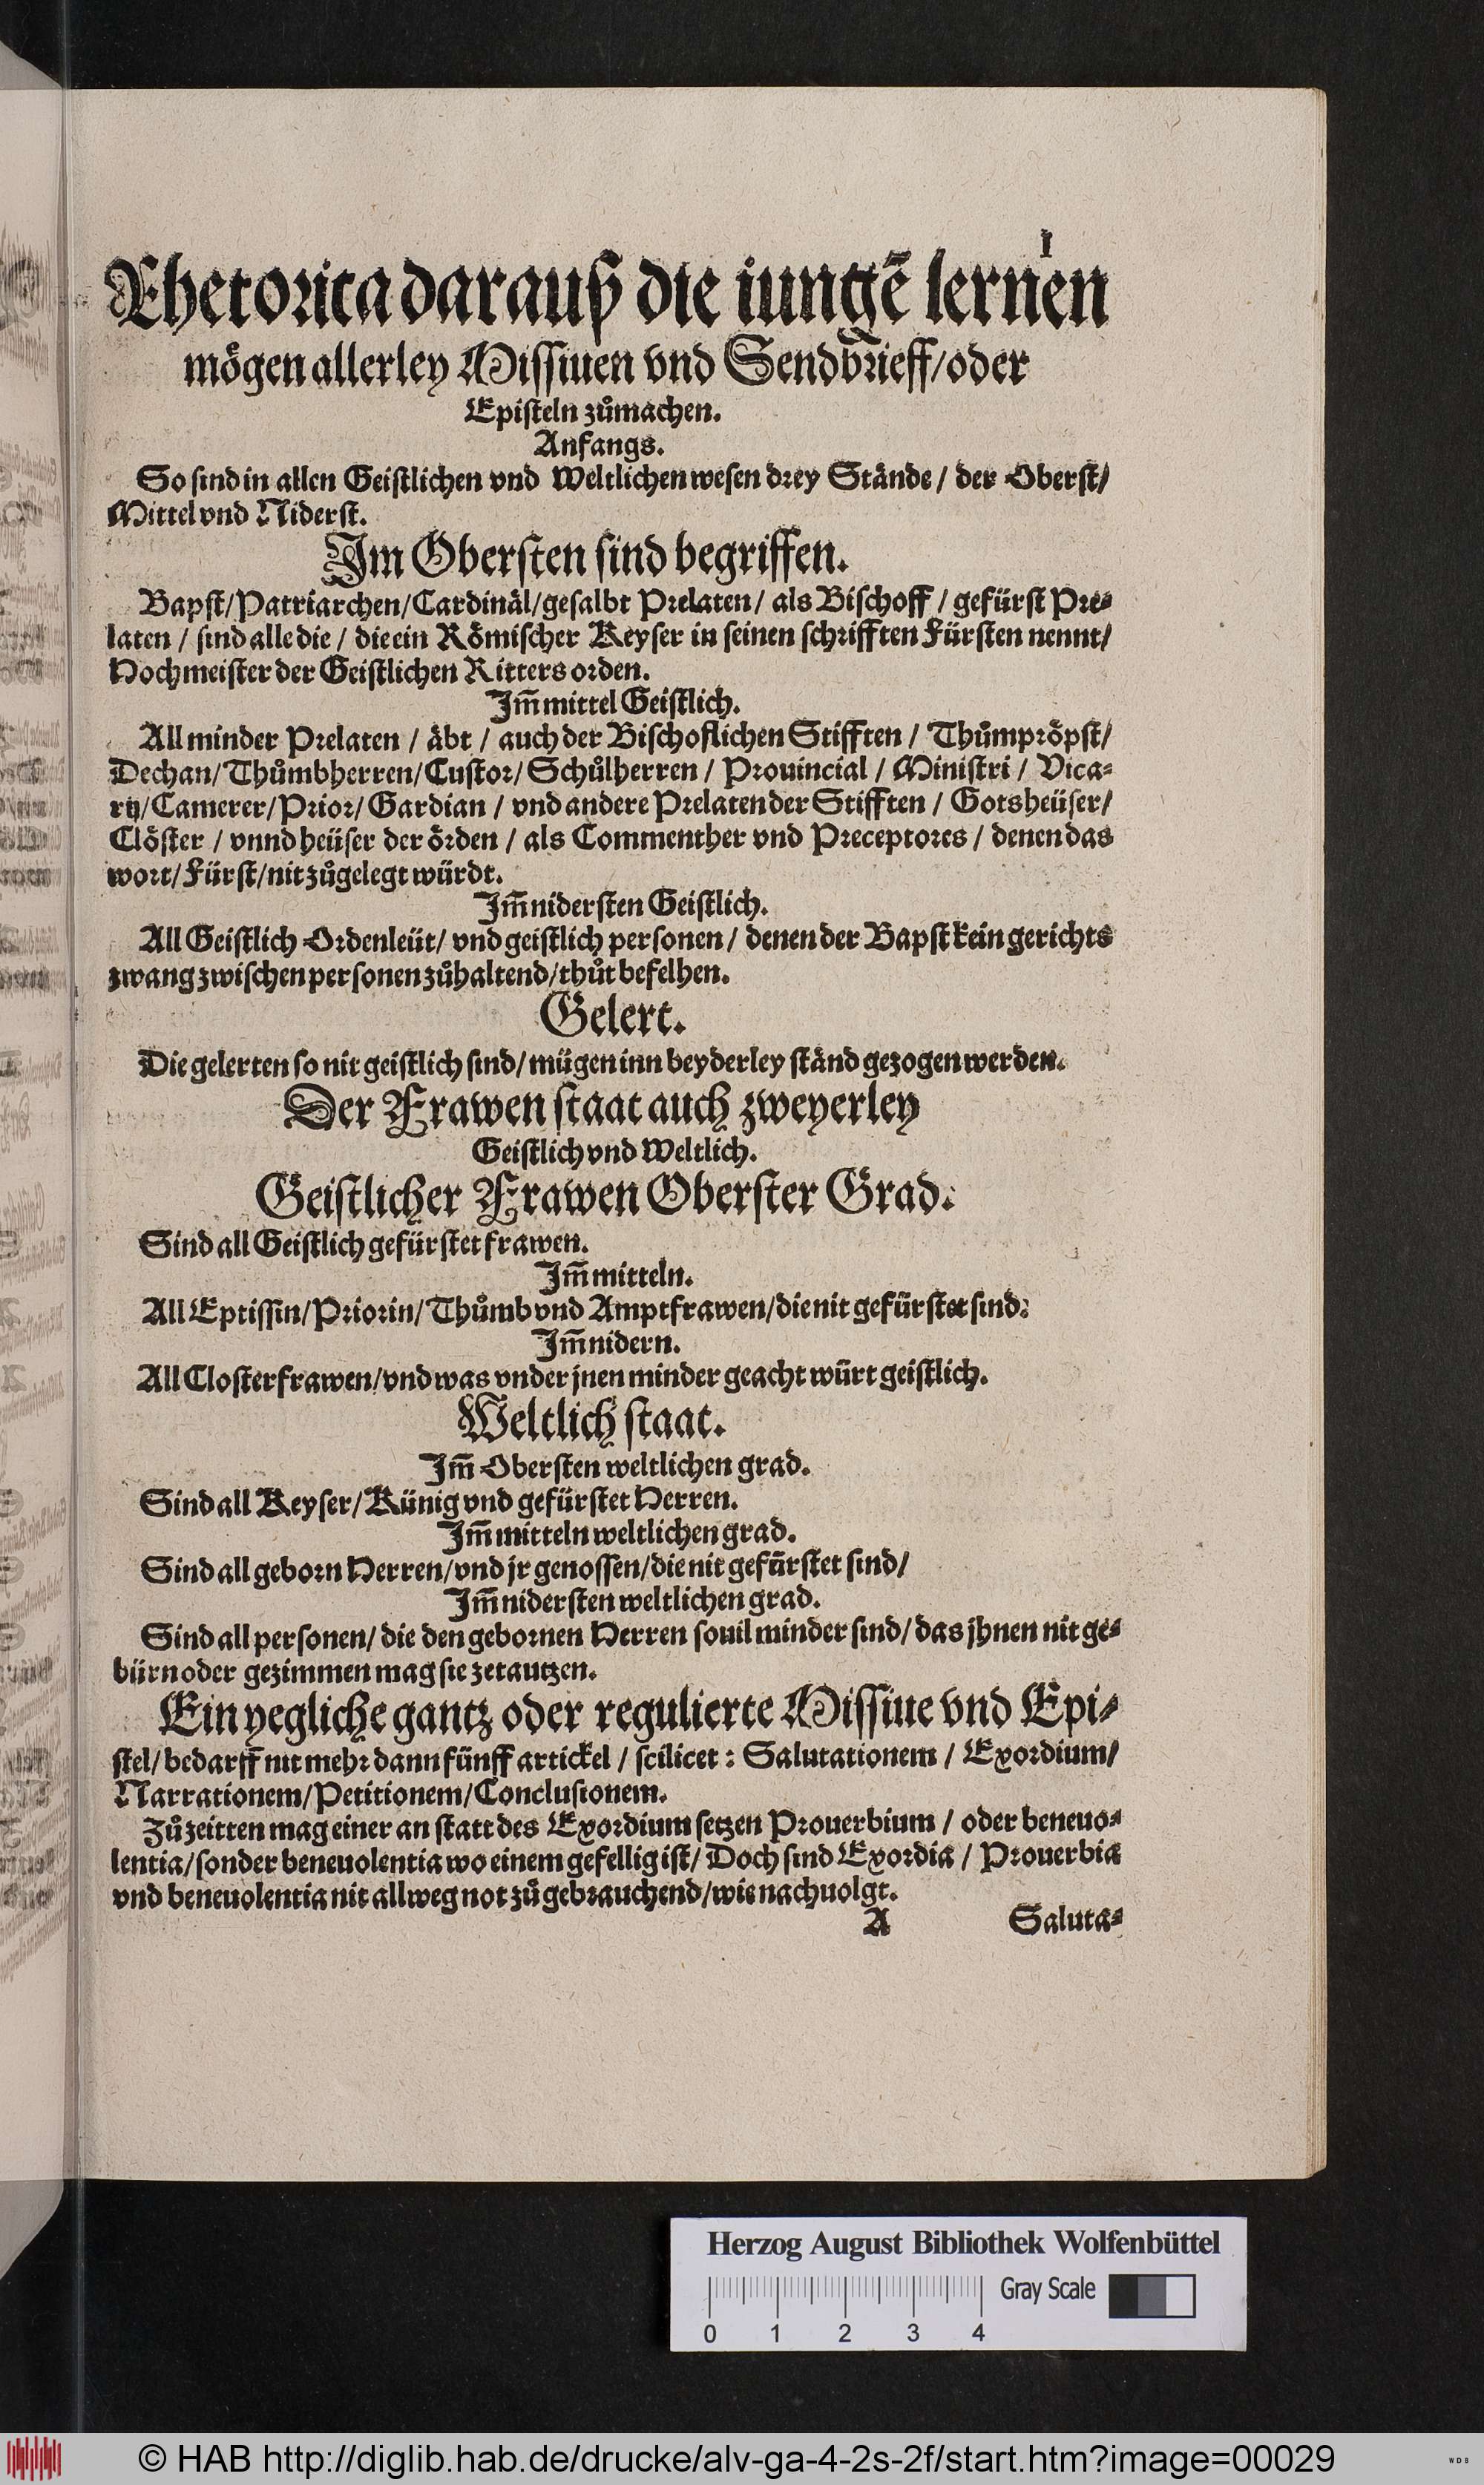 I
Rhetorica darauß die iungẽ lernen
mögen allerley Missiuen vnd Sendbrieff/oder
Episteln zůmachen.
Anfangs.
So sind in allen Geistlichen vnd Weltlichen wesen drey Stände / der Oberst/
Mittel vnd Niderst.
Im Obersten sind begriffen.
Bapst/Patriarchen/Cardinäl/gesalbt Prelaten/ als Bischoff / gefürst Pre-
laten / sind alle die / die ein Römischer Keyser in seinen schrifften Fürsten nennt/
Hochmeister der Geistlichen Ritters orden.
Im̃ mittel Geistlich.
All minder Prelaten / äbt / auch der Bischoflichen Stifften / Thůmpröpst/
Dechan/Thůmbherren/Custor/Schůlherren / Prouincial / Ministri / Vica-
rij/Camerer/Prior/Gardian / vnd andere Prelaten der Stifften / Gotsheüser/
Clöster / vnnd heüser der örden / als Commenther vnd Preceptores / denen das
wort/Fürst/nit zůgelegt würdt.
Im̃ nidersten Geistlich.
All Geistlich Ordenleüt/ vnd geistlich personen/ denen der Bapst kein gerichts
zwang zwischen personen zůhaltend/thůt befelhen.
Gelert.
Die gelerten so nit geistlich sind/mügen inn beyderley ständ gezogen werden.
Der Frawen staat auch zweyerley
Geistlich vnd Weltlich.
Geistlicher Frawen Oberster Grad.
Sind all Geistlich gefürstet frawen.
Im̃ mitteln.
All Eptissin/Priorin/Thůmb vnd Amptfrawen/die nit gefürstet sind.
Im̃ nidern.
All Closterfrawen/vnd was vnder jnen minder geacht würt geistlich.
Weltlich staat.
Im̃ Obersten weltlichen grad.
Sind all Keyser/Künig vnd gefürstet Herren.
Im̃ mitteln weltlichen grad.
Sind all geborn Herren/vnd jr genossen/die nit gefürstet sind/
Im̃ nidersten weltlichen grad.
Sind all personen/ die den gebornen Herren souil minder sind/das jhnen nit ge-
bürn oder gezimmen mag sie zetautzen.
Ein yegliche gantz oder regulierte Missiue vnd Epi-
stel/bedarff nit mehr dann fünff artickel / scilicet : Salutationem / Exordium/
Narrationem/Petitionem/Conclusionem.
Zůzeitten mag einer an statt des Exordium setzen Prouerbium / oder beneuo-
lentia/sonder beneuolentia wo einem gefellig ist/ Doch sind Exordia / Prouerbia
vnd beneuolentia nit allweg not zů gebrauchend/wie nachuolgt.
A Saluta-
Herzog August Bibliothek Wolfenbüttel
Gray Scale
0 1 2 3 4
© HAB http://diglib.hab.de/drucke/alv-ga-4-2s-2f/start.htm?image=00029
WDB